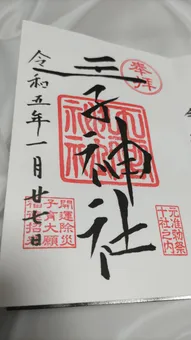 奉拝
王子神社
元准勅祭
十社之内
令和五年一月廿七日
開運除災
子育大願
招来